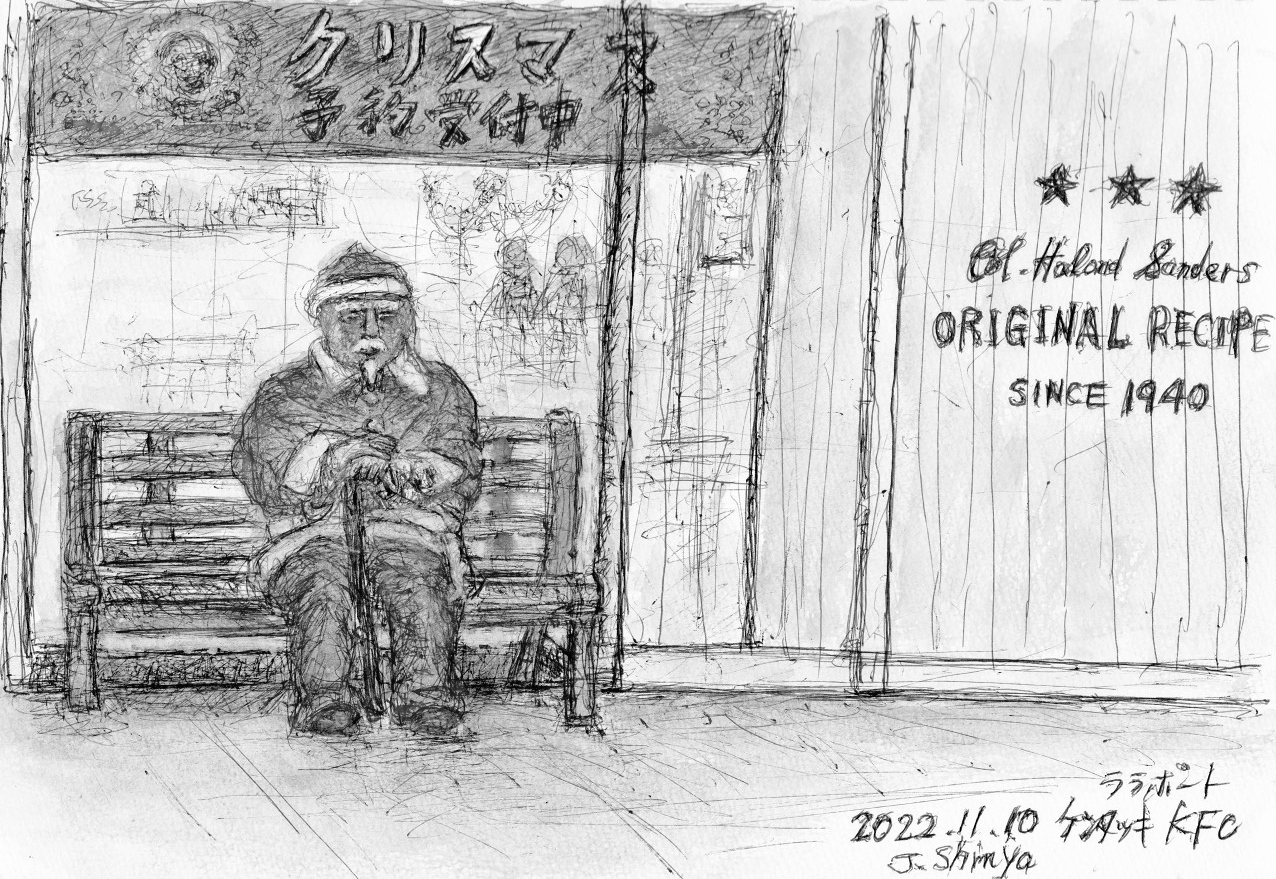 クリスマス
予約受付中
★ ★ ★
Ol. Haland Sanders
ORIGINAL RECIPE
SINCE 1940
ララポート
2022.11.10 ケンタッキ KFC
J. Shinya